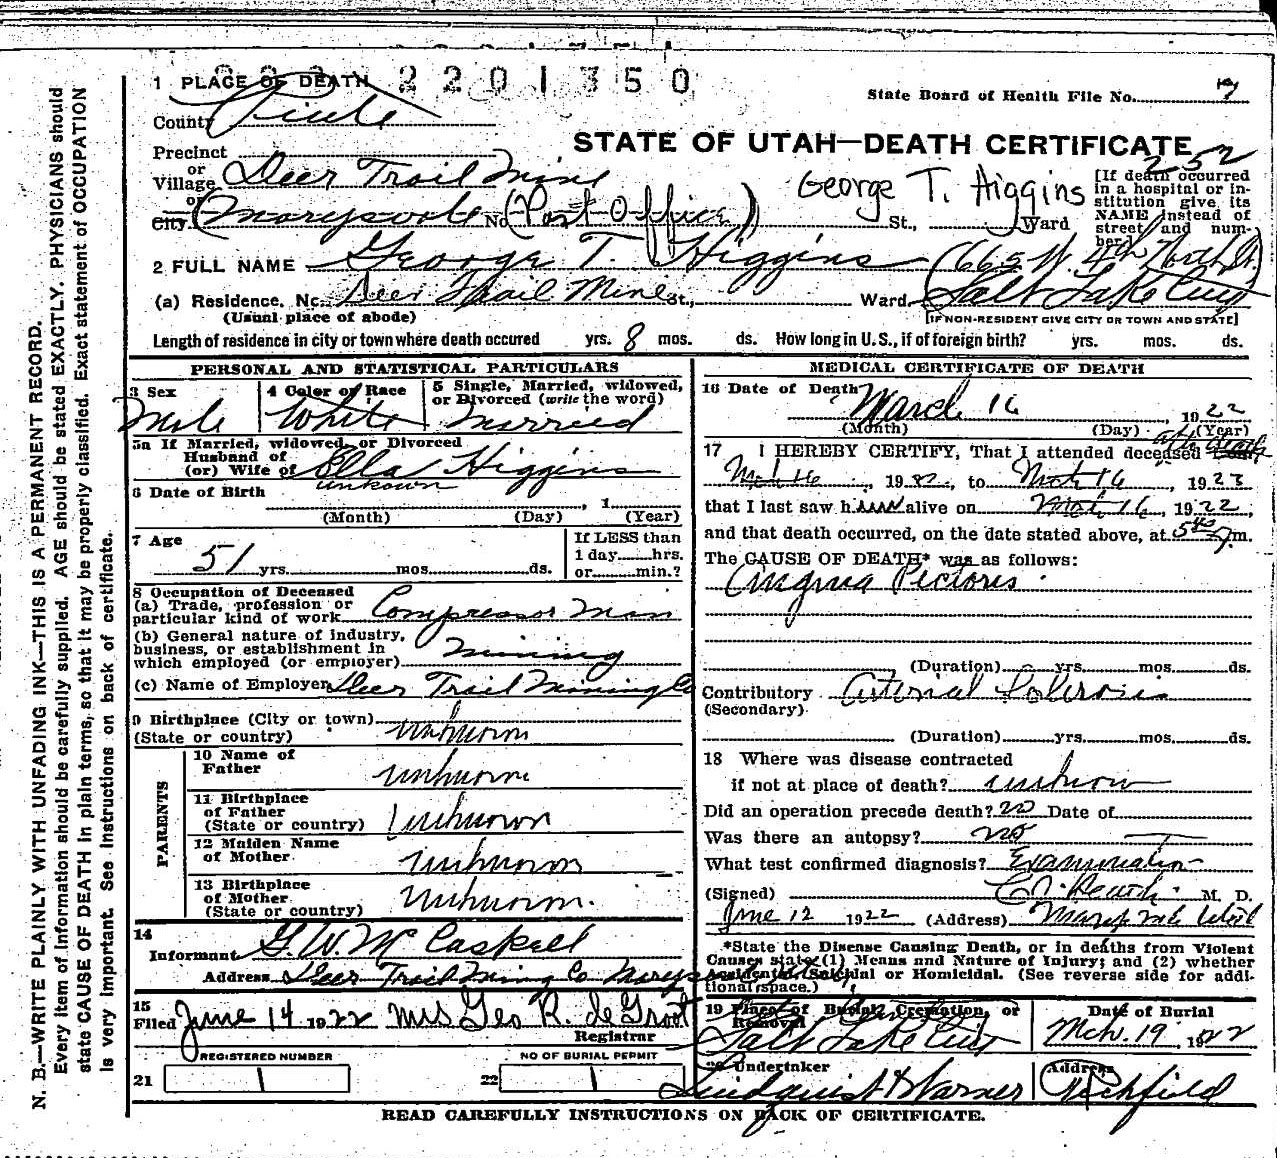 2201350
1 PLACE OF DEATH
State Board of Health File No. 7
County Piute
STATE OF UTAH—DEATH CERTIFICATE
252
Precinct
or
Village Deer Trail Mine
or
City (Marysvale No. (Post Office) St., Ward
George T. Higgins
[If death occurred
in a hospital or in-
stitution give its
NAME instead of
street and num-
ber.]
2 FULL NAME George T. Higgins (665 W. 4th North St.
(a) Residence. No. Deer Trail Mine St., Ward. Salt Lake City
(Usual place of abode)
[IF NON-RESIDENT GIVE CITY OR TOWN AND STATE]
Length of residence in city or town where death occured yrs. 8 mos. ds. How long in U.S., if of foreign birth? yrs. mos. ds.
PERSONAL AND STATISTICAL PARTICULARS
3 Sex
Male
4 Color or Race
White
5 Single, Married, widowed,
or Divorced (write the word)
Married
5a If Married, widowed, or Divorced
Husband of
(or) Wife of Ella Higgins
6 Date of Birth unkown , 1
(Month) (Day) (Year)
7 Age
51 yrs. mos. ds.
If LESS than
1 day hrs.
or min.?
8 Occupation of Deceased
(a) Trade, profession or
particular kind of work Compressor Man
(b) General nature of industry,
business, or establishment in
which employed (or employer) Mining
(c) Name of Employer Deer Trail Mining Co
9 Birthplace (City or town)
(State or country) unknown
PARENTS
10 Name of
Father unknown
11 Birthplace
of Father
(State or country) unknown
12 Maiden Name
of Mother unknown
13 Birthplace
of Mother
(State or country) unknown.
14
Informant G. W. McCaskell
Address Deer Trail Mining Co
15
Filed June 14 1922 Mrs Geo R. de Groot
Registrar
REGISTERED NUMBER
21 1
NO OF BURIAL PERMIT
22 1
MEDICAL CERTIFICATE OF DEATH
16 Date of Death March 16 1922
(Month) (Day) (Year)
17 I HEREBY CERTIFY, That I attended deceased after death
Mch 16, 1922, to Mch 16, 1922
that I last saw h alive on Mch 16, 1922,
and that death occurred, on the date stated above, at 5 m.
The CAUSE OF DEATH* was as follows:
Angina Pictoris.
(Duration) yrs. mos. ds.
Contributory Arterial Sclerosis
(Secondary)
(Duration) yrs. mos. ds.
18 Where was disease contracted
if not at place of death? unknow
Did an operation precede death? no Date of
Was there an autopsy? no
What test confirmed diagnosis? Examination
(Signed) M. D.
June 12 1922 (Address) Marysvale Utah
*State the Disease Causing Death, or in deaths from Violent
Causes state (1) Means and Nature of Injury; and (2) whether
Accidental, Suicidal or Homicidal. (See reverse side for addi-
tional space.)
19 Place of Burial, Cremation, or
Removal
Salt Lake City
Date of Burial
Mch. 19, 1922
20 Undertaker
Lindquist & Warner
Address
Richfield
READ CAREFULLY INSTRUCTIONS ON BACK OF CERTIFICATE.
N. B.—WRITE PLAINLY WITH UNFADING INK—THIS IS A PERMANENT RECORD.
Every item of Information should be carefully supplied. AGE should be stated EXACTLY. PHYSICIANS should
state CAUSE OF DEATH in plain terms, so that it may be properly classified. Exact statement of OCCUPATION
is very important. See Instructions on back of certificate.